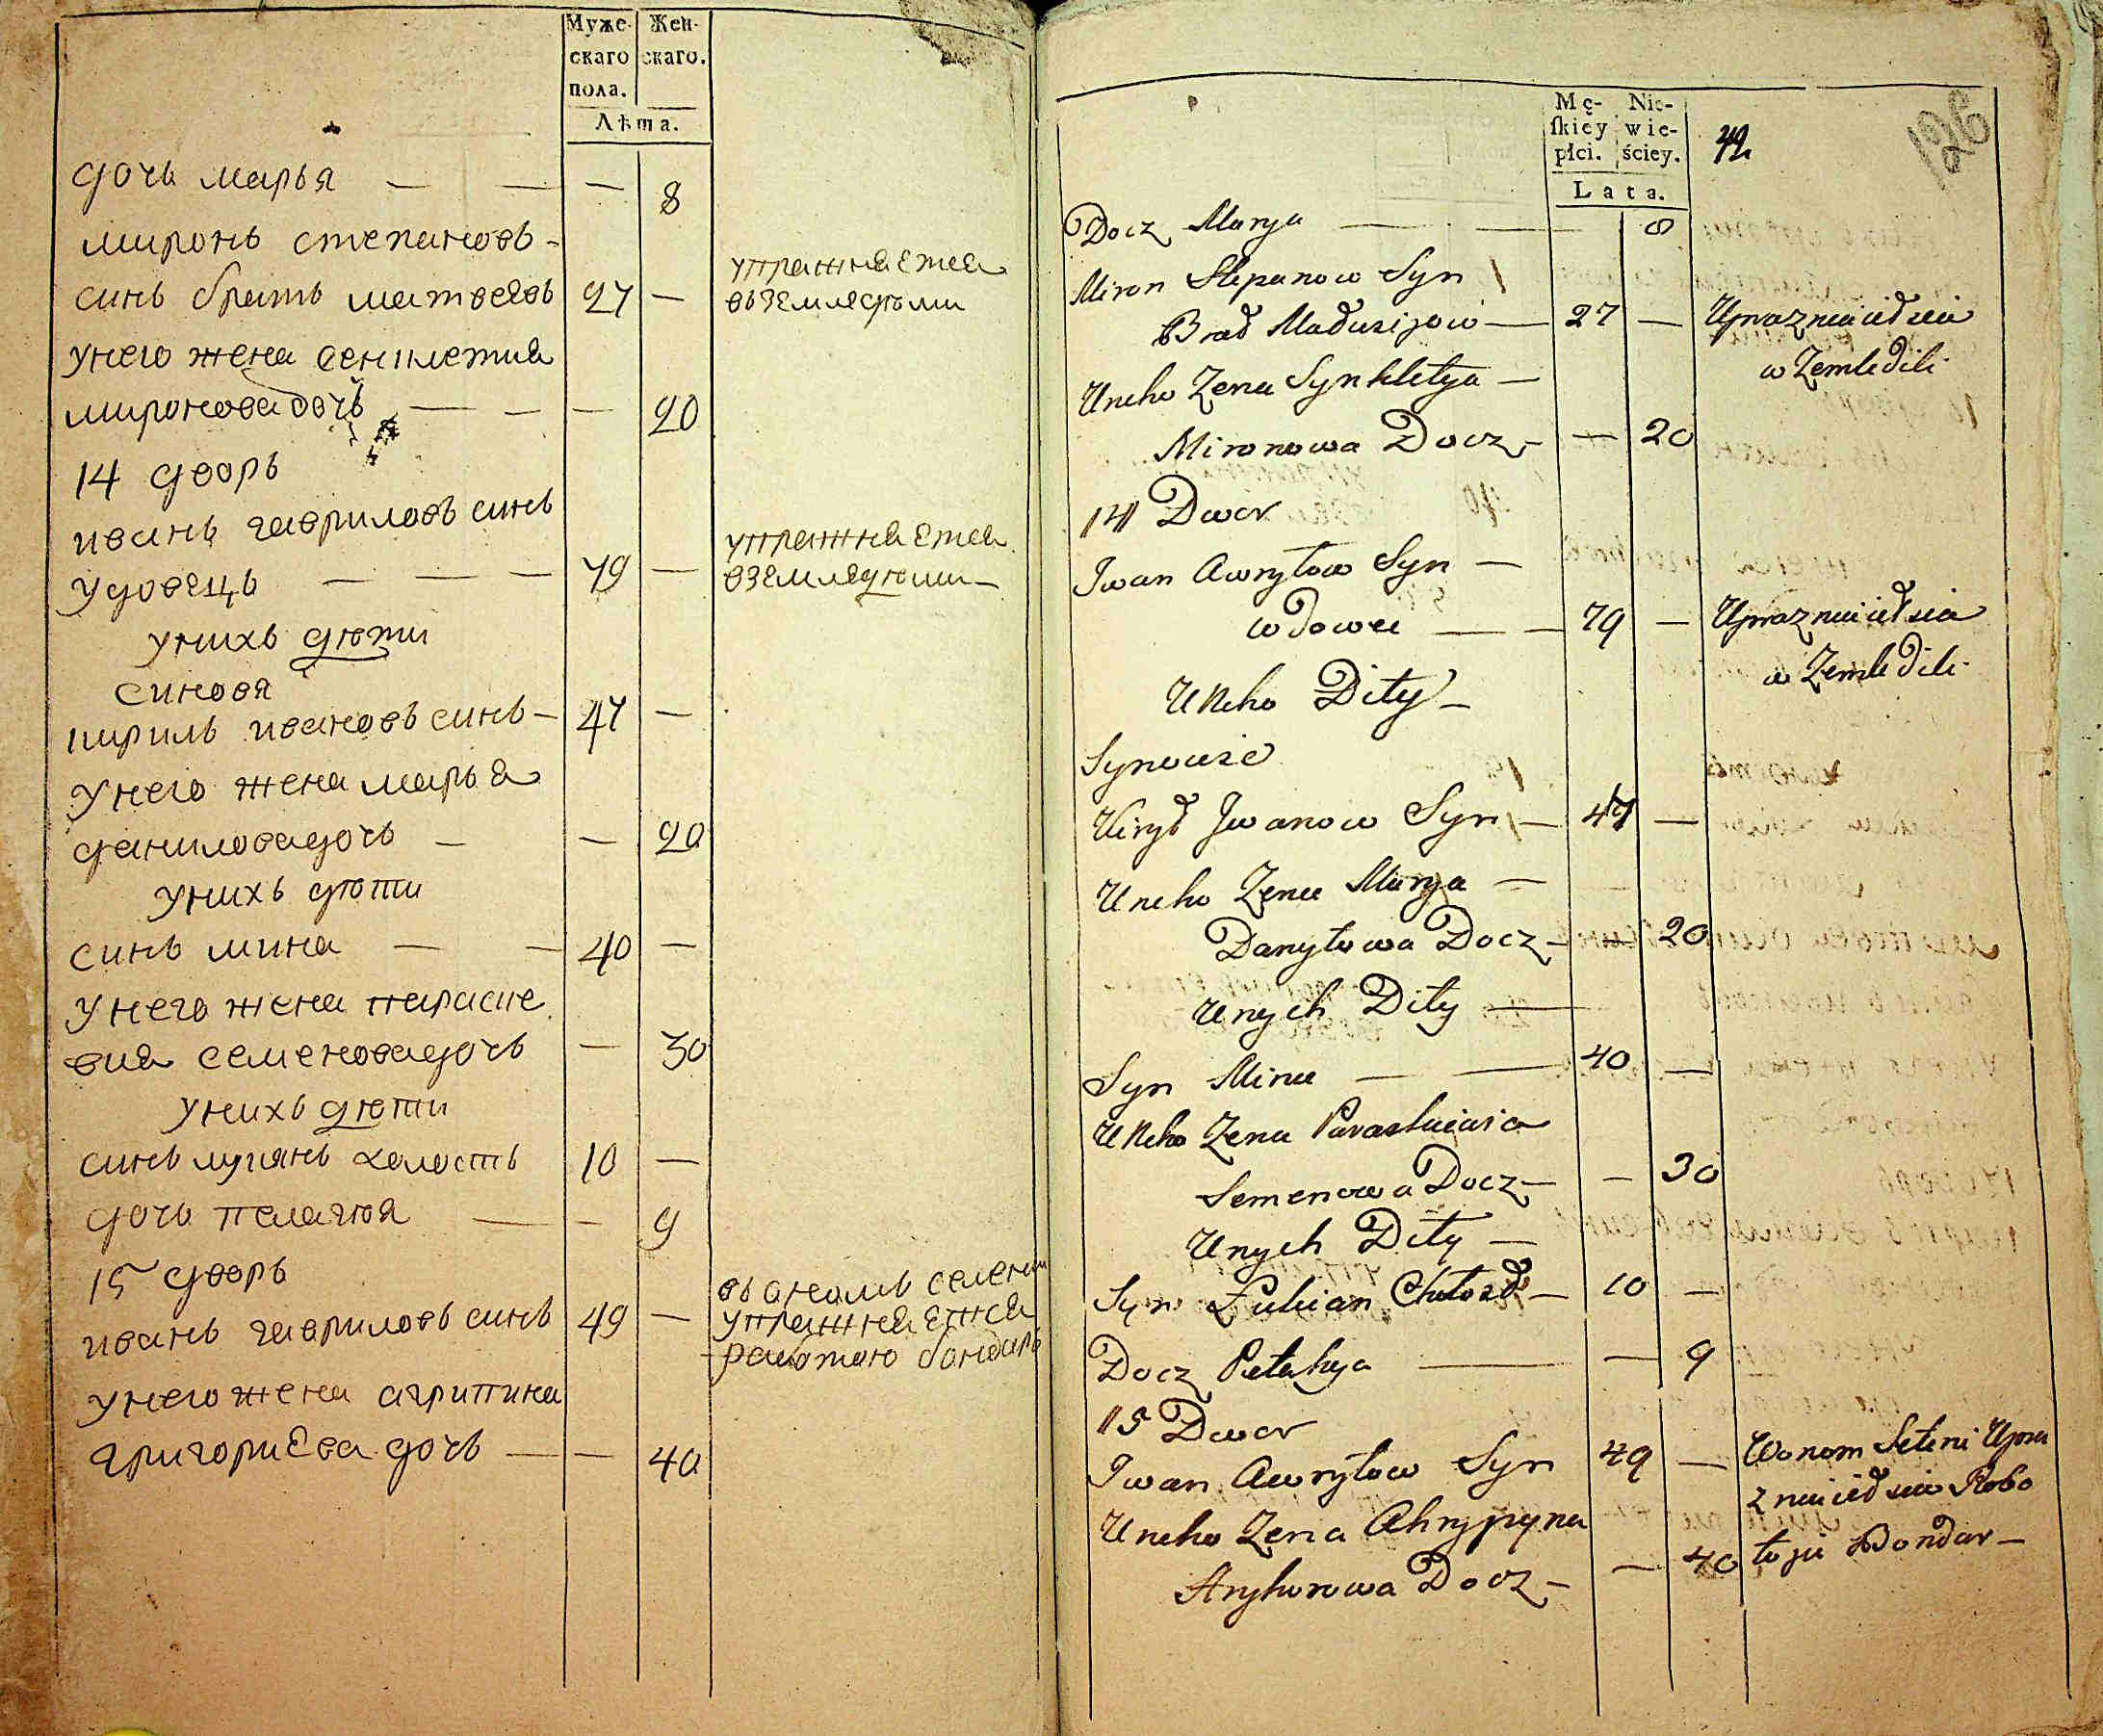 Муже-
скаго
пола.
Жен-
скаго.
Лѣта.
дочь марья — — — 8
миронъ степановъ -
синъ братъ матвеевъ 27 — упражняется
въ земледѣли
унего жена сенклетия
миронова дочь — — — 20
14 дворъ
иванъ гавриловъ синъ
удовецъ — — — 79 — упражняется
вземледѣли —
унихъ дѣти
синовя
кирилъ ивановъ синъ — 47 —
унего жена марья
данилова дочь — — 20
унихъ дѣти
синъ мина — — 40 —
унего жена параске
вия семенова дочь — 30
унихъ дѣти
синъ лукянъ холостъ 10 —
дочь пелагѣя — — 9
15 дворъ
иванъ гавриловъ синъ 49 — въ ономъ селении
упражняется
работою бондаръ
унего жена агрипина
григориева дочь — — 40
Mę-
ſkiey
płci.
Nie-
wie-
ściey.
Lata.
42
126
Docz Marya — — 8
Miron Stepanow Syn
Brad Maduszijow — 27 — Uprazniaiedsia
w Zemledili
Uneho Zena Synkletya —
Mironowa Docz — — 20
14 Dwor
Iwan Awryłow Syn —
wdowec — — 79 — Uprazniaiedsia
w Zemledili
Uneho Dity —
Synowie
Kirył Iwanow Syn — 47 —
Uneho Zena Marya —
Danyłowa Docz — — 20
Unych Dity —
Syn Mina — — 40 —
Uneho Zena Paraskiewia
Semenowa Docz — — 30
Unych Dity —
Syn Łukian Chołosd — 10 —
Docz Pełahya — — 9
15 Dwor
Iwan Awryłow Syn 49 — Wonom Seleni Upra
zniaiedsia Robo
toju Bondar —
Uneho Zena Ahrypyna
Hryhorowa Docz — — 40